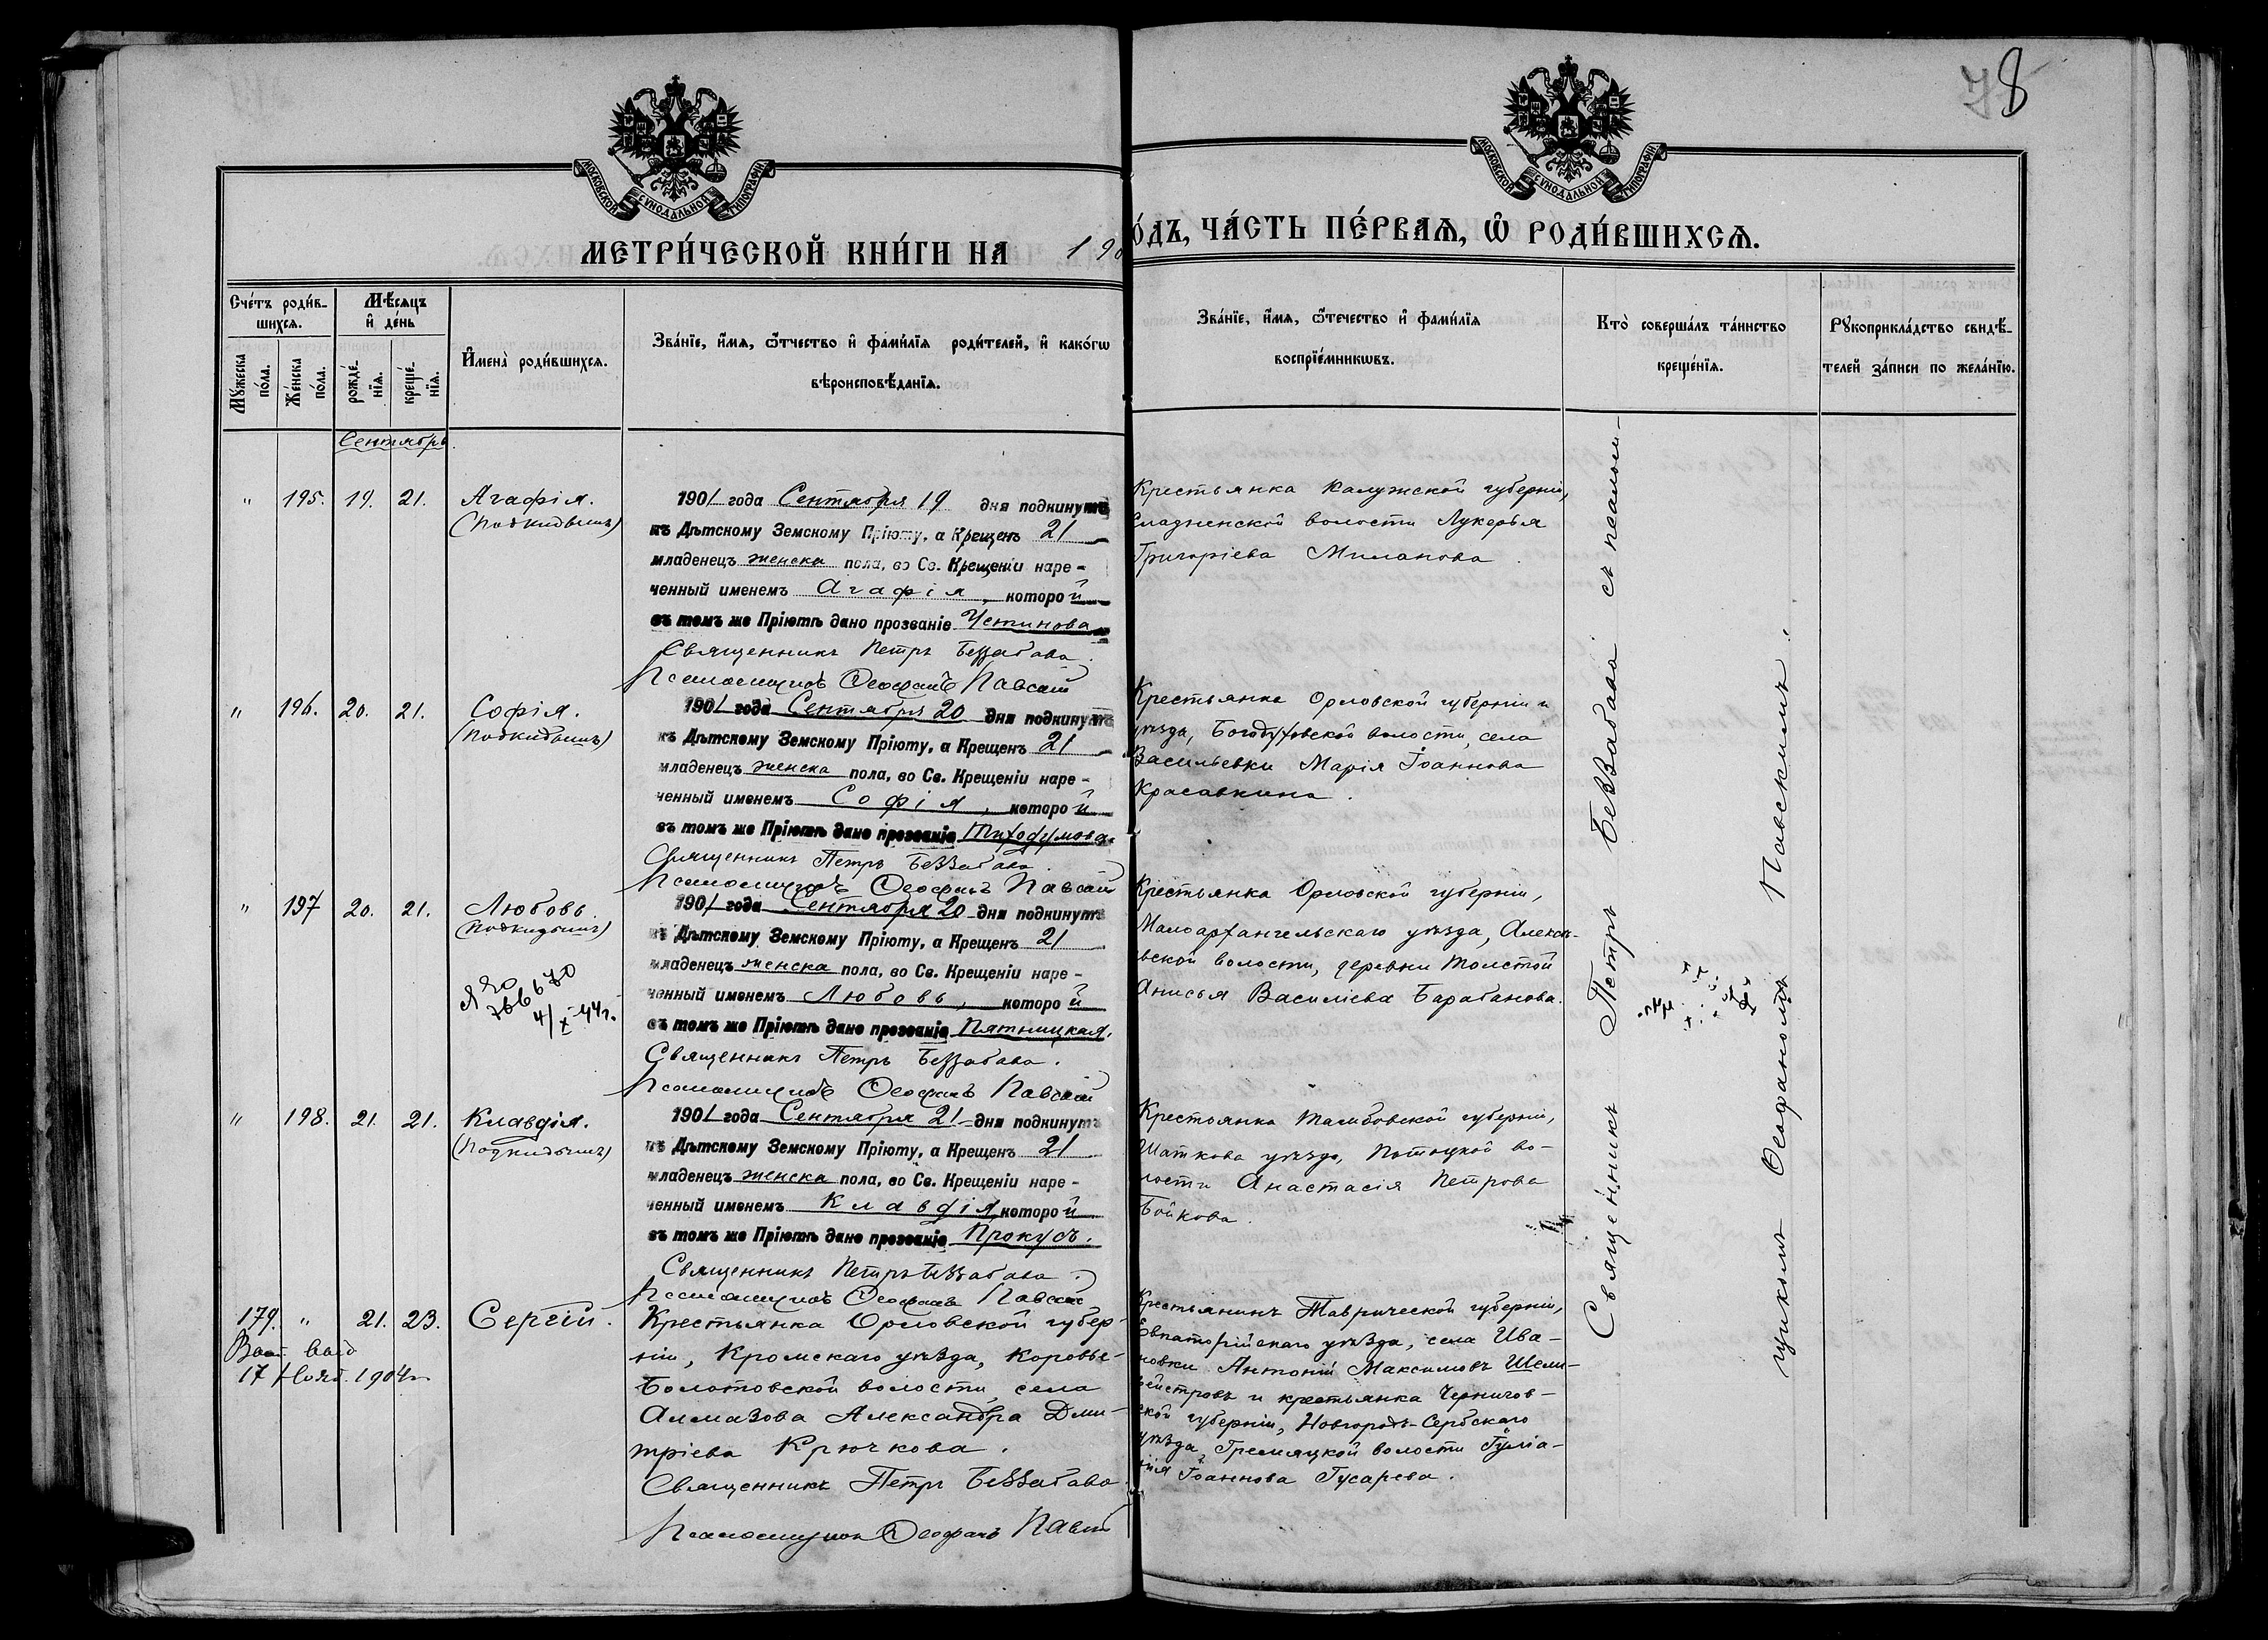 78
МОСКОВСКОЙ СѴНОДАЛЬНОЙ ТИПОГРАФІИ
МОСКОВСКОЙ СѴНОДАЛЬНОЙ ТИПОГРАФІИ
МЕТРИ́ЧЕСКОЙ КНИ́ГИ НА 190
О́ДЪ, ЧА́СТЬ ПЕ́РВАѦ, Ѡ҆ РОДИ́ВШИХСѦ.
Сче́тъ роди́в-
шихсѧ.
Мѣ́сѧцъ
и҆ де́нь
Мꙋ́жеска
по́ла.
Же́нска
по́ла.
рожде́-
нїѧ.
креще́-
нїѧ.
И҆мена̀ роди́вшихсѧ.
Зва́нїе, и҆́мѧ, ѻ҆́тчество и҆ фами́лїѧ роди́телей, и҆ како́гѡ
вѣроисповѣ́данїѧ.
Зва́нїе, и҆́мѧ, ѻ҆́течество и҆ фами́лїѧ
воспрїе́мникѡвъ.
Кто̀ соверша́лъ та́инство
креще́нїѧ.
Рꙋкоприкла́дство свидѣ́-
телей за́писи по жела́нїю.
Сентябрь.
" 195. 19. 21. Агафія.
(подкидышъ)
1901 года Сентября 19 дня подкинутъ
къ Дѣтскому Земскому Пріюту, а Крещенъ 21
младенецъ женска пола, во Св. Крещеніи наре-
ченный именемъ Агафія, которой
въ томъ же Пріютѣ дано прозваніе Устинова
Священникъ Петръ Беззабава.
Псаломщикъ Ѳеофанъ Павскій
Крестьянка Калужской губерніи,
волости Лукерья
Григоріева Миланова.
" 196. 20. 21. Софія.
(подкидышъ)
1901 года Сентября 20 дня подкинутъ
къ Дѣтскому Земскому Пріюту, а Крещенъ 21
младенецъ женска пола, во Св. Крещеніи наре-
ченный именемъ Софія, которой
въ томъ же Пріютѣ дано прозваніе Тиходумова
Священникъ Петръ Беззабава
Псаломщикъ Ѳеофанъ Павскій
Крестьянка Орловской губерніи и
уѣзда, Богодуховской волости, села
Васильевки Марія Іоаннова
Красавкина.
" 197 20. 21. Любовь.
(подкидышъ)
766670
4/X-44г.
1901 года Сентября 20 дня подкинутъ
къ Дѣтскому Земскому Пріюту, а Крещенъ 21
младенецъ женска пола, во Св. Крещеніи наре-
ченный именемъ Любовь, которой
въ томъ же Пріютѣ дано прозваніе Пятницкая.
Священникъ Петръ Беззабава.
Псаломщикъ Ѳеофанъ Павскій
Крестьянка Орловской губерніи,
Малоархангельскаго уѣзда, Алексѣ-
вской волости, деревни Толстой
Анисья Василіева Барабанова.
" 198. 21. 21. Клавдія.
(подкидышъ)
1901 года Сентября 21 дня подкинутъ
къ Дѣтскому Земскому Пріюту, а Крещенъ 21
младенецъ женска пола, во Св. Крещеніи наре-
ченный именемъ Клавдія, которой
въ томъ же Пріютѣ дано прозваніе Прокусъ.
Священникъ Петръ Беззабава.
Псаломщикъ Ѳеофанъ Павскій
Крестьянка Тамбовской губерніи,
Шаткова уѣзда, Потоцкой во-
лости Анастасія Петрова
Бойкова.
179. " 21. 23. Сергій.
17 Нояб. 1904г
Крестьянка Орловской губер-
ніи, Кромскаго уѣзда, Коровье-
Болотовской волости, села
Алмазова Александра Дми-
тріева Крючкова.
Священникъ Петръ Беззабава.
Псаломщикъ Ѳеофанъ Павскій
Крестьянинъ Таврической губерніи,
Евпаторійскаго уѣзда, села Ива-
новки Антоній Максимовъ Шель-
мейстровъ и крестьянка Чернигов-
ской губерніи, Новгородъ-Сербскаго
уѣзда, Гремяцкой волости Гуліа-
нія Іоаннова Гусарева.
Священникъ Петръ Беззабава съ псалом-
щикомъ Ѳеофаномъ Павскимъ.